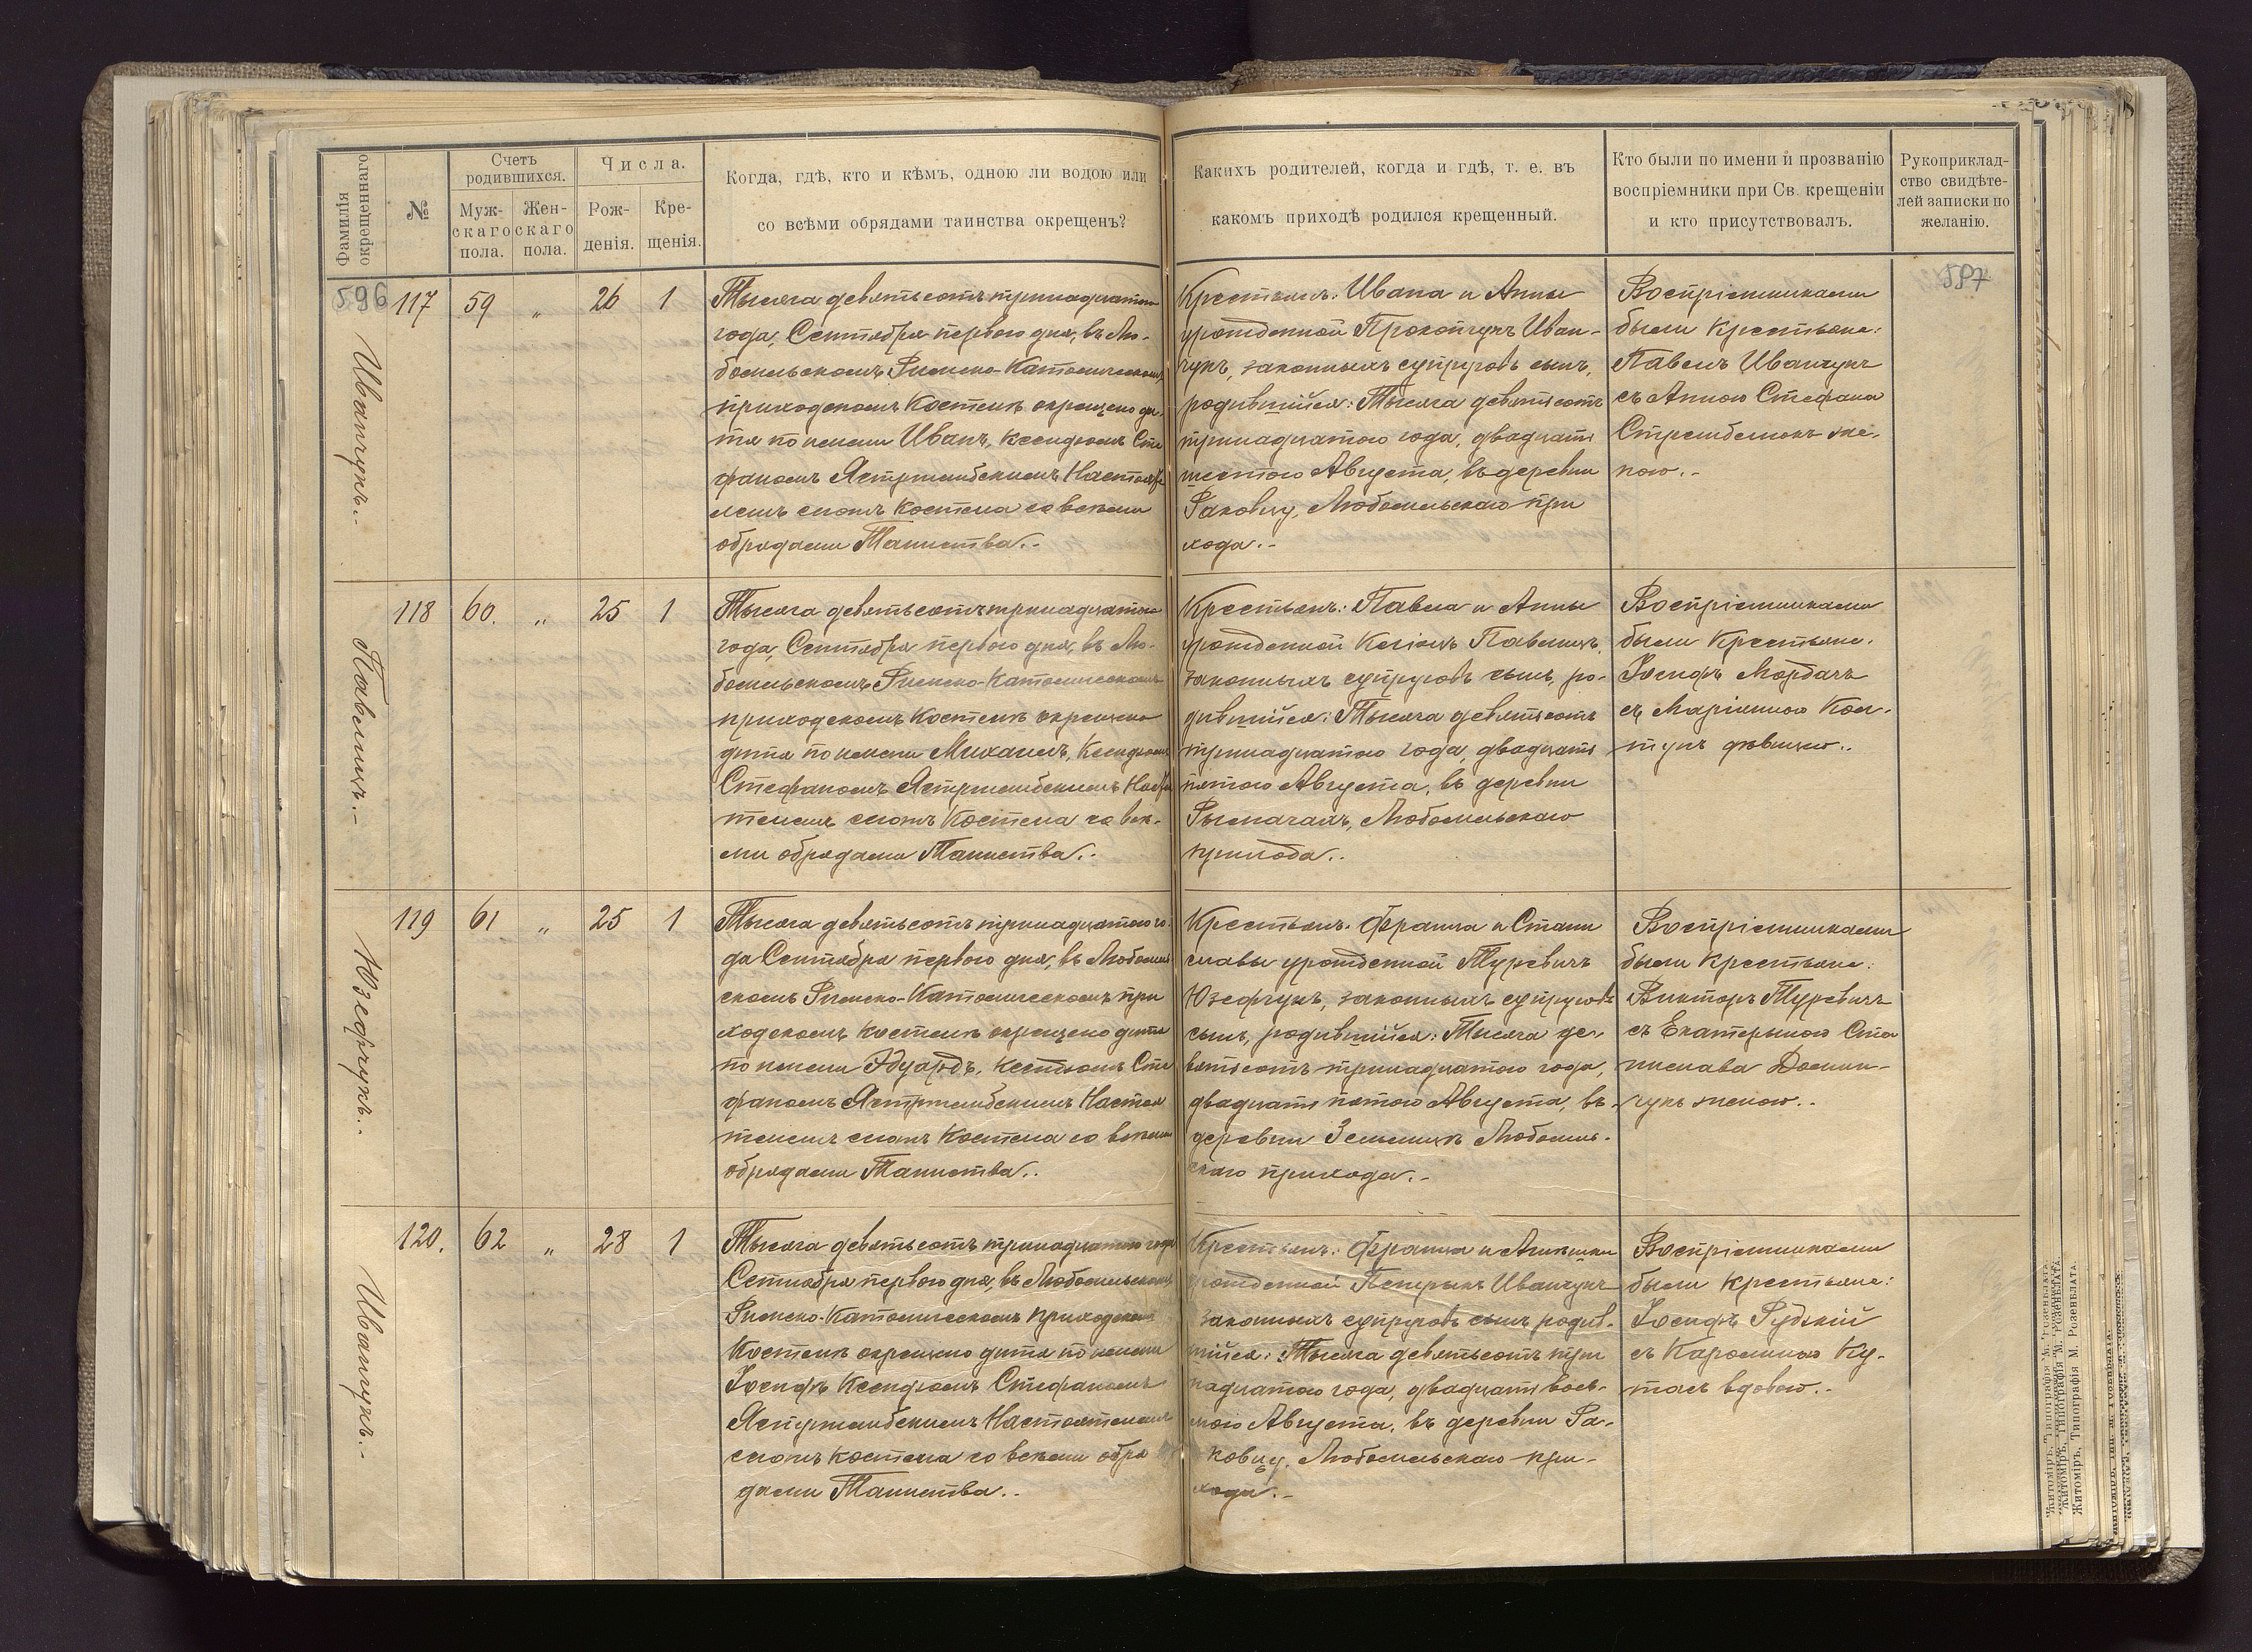 Фамилія окрещеннаго
№
Счетъ родившихся.
Мужскаго пола.
Женскаго пола.
Числа.
Рожденія.
Крещенія.
Когда, гдѣ, кто и кѣмъ, одною ли водою или
со всѣми обрядами таинства окрещенъ?
Какихъ родителей, когда и гдѣ, т. е. въ
какомъ приходѣ родился крещенный.
Кто были по имени и прозванію
воспріемники при Св. крещеніи
и кто присутствовалъ.
Рукоприклад-
ство свидѣте-
лей записки по
желанію.
596
597
Иванчукъ.-
117 59 " 26 1
Тысяча девятьсотъ тринадцатого
года, Сентября перваго дня, въ Лю-
бомльскомъ Римско-Католическомъ
приходскомъ Костелѣ окрещено ди-
тя по имени Иванъ, Ксендзомъ Сте
фаномъ Ястржембскимъ Настояте
лемъ сиогъ Костела со всѣми
обрядами Таинства.-
Крестьянъ: Ивана и Анны
урожденной Прокопчукъ Иван-
чукъ, законныхъ супруговъ сынъ,
родившійся: Тысяча девятьсотъ
тринадцатого года, двадцать
шестого Августа, въ деревни
Раковцу, Любомльскаго при
хода.-
Воспріемниками
были Крестьяне:
Павелъ Иванчукъ
съ Анною Стефана
Стрембелюкъ же-
ною.-
Павелицъ.-
118 60. " 25 1
Тысяча девятьсотъ тринадцатого
года, Сентября перваго дня, въ Лю-
бомльскомъ Римско-Католическомъ
приходскомъ Костелѣ окрещено
дитя по имени Михаилъ, Ксендзомъ
Стефаномъ Ястржембскимъ Настоя
телемъ сиогъ Костела со всѣ-
ми обрядами Таинства.-
Крестьянъ: Павла и Анны
урожденной Павелицъ,
законныхъ супруговъ сынъ, ро-
дившійся: Тысяча девятьсотъ
тринадцатого года, двадцать
пятого Августа, въ деревни
Рымачахъ, Любомльскаго
прихода.-
Воспріемниками
были Крестьяне.
Іосифъ Мордачъ
съ Маріянною Ков-
тунъ дѣвицею.-
Юзефчукъ.-
119 61 " 25 1
Тысяча девятьсотъ тринадцатого го-
да Сентября перваго дня, въ Любомль
скомъ Римско-Католическомъ при
ходскомъ Костелѣ окрещено дитя
по имени Эдуардъ, Ксендзомъ Сте
фаномъ Ястржембскимъ Настоя
телемъ сиогъ Костела со всѣми
обрядами Таинства.-
Крестьянъ. Франца и Стани
славы урожденной Туревичъ
Юзефчукъ, законныхъ супруговъ
сынъ, родившійся: Тысяча де-
вятьсотъ тринадцатого года,
двадцать пятого Августа, въ
деревни Землицѣ Любомль-
скаго прихода.-
Воспріемниками
были Крестьяне:
Викторъ Туревичъ
съ Екатерыною Ста
нислава Домин-
чукъ женою.-
Иванчукъ.-
120. 62 " 28 1
Тысяча девятьсотъ тринадцатого года
Сетнября перваго дня, въ Любомльскомъ
Римско-Католическомъ Приходскомъ
Костелѣ окрещено дитя по имени
Іосифъ Ксендзомъ Стефаномъ
Ястржембскимъ Настоятелемъ
сиогъ Костела со всѣми обря
дами Таинства.-
Крестьянъ: Франца и Агнешки
урожденной Петрыкъ Иванчукъ
законныхъ супруговъ сынъ родив-
шійся: Тысяча девятьсотъ три
надцатого года, двадцать вось-
мого Августа, въ деревни Ра-
ковцу, Любомльскаго при-
хода.-
Воспріемниками
были Крестьяне:
Іосифъ Рудскій
съ Каролиною Ку-
тасъ вдовою.-
Житоміръ, Типографія М. Розенблата.
Житоміръ, Типографія М. Розенблата.